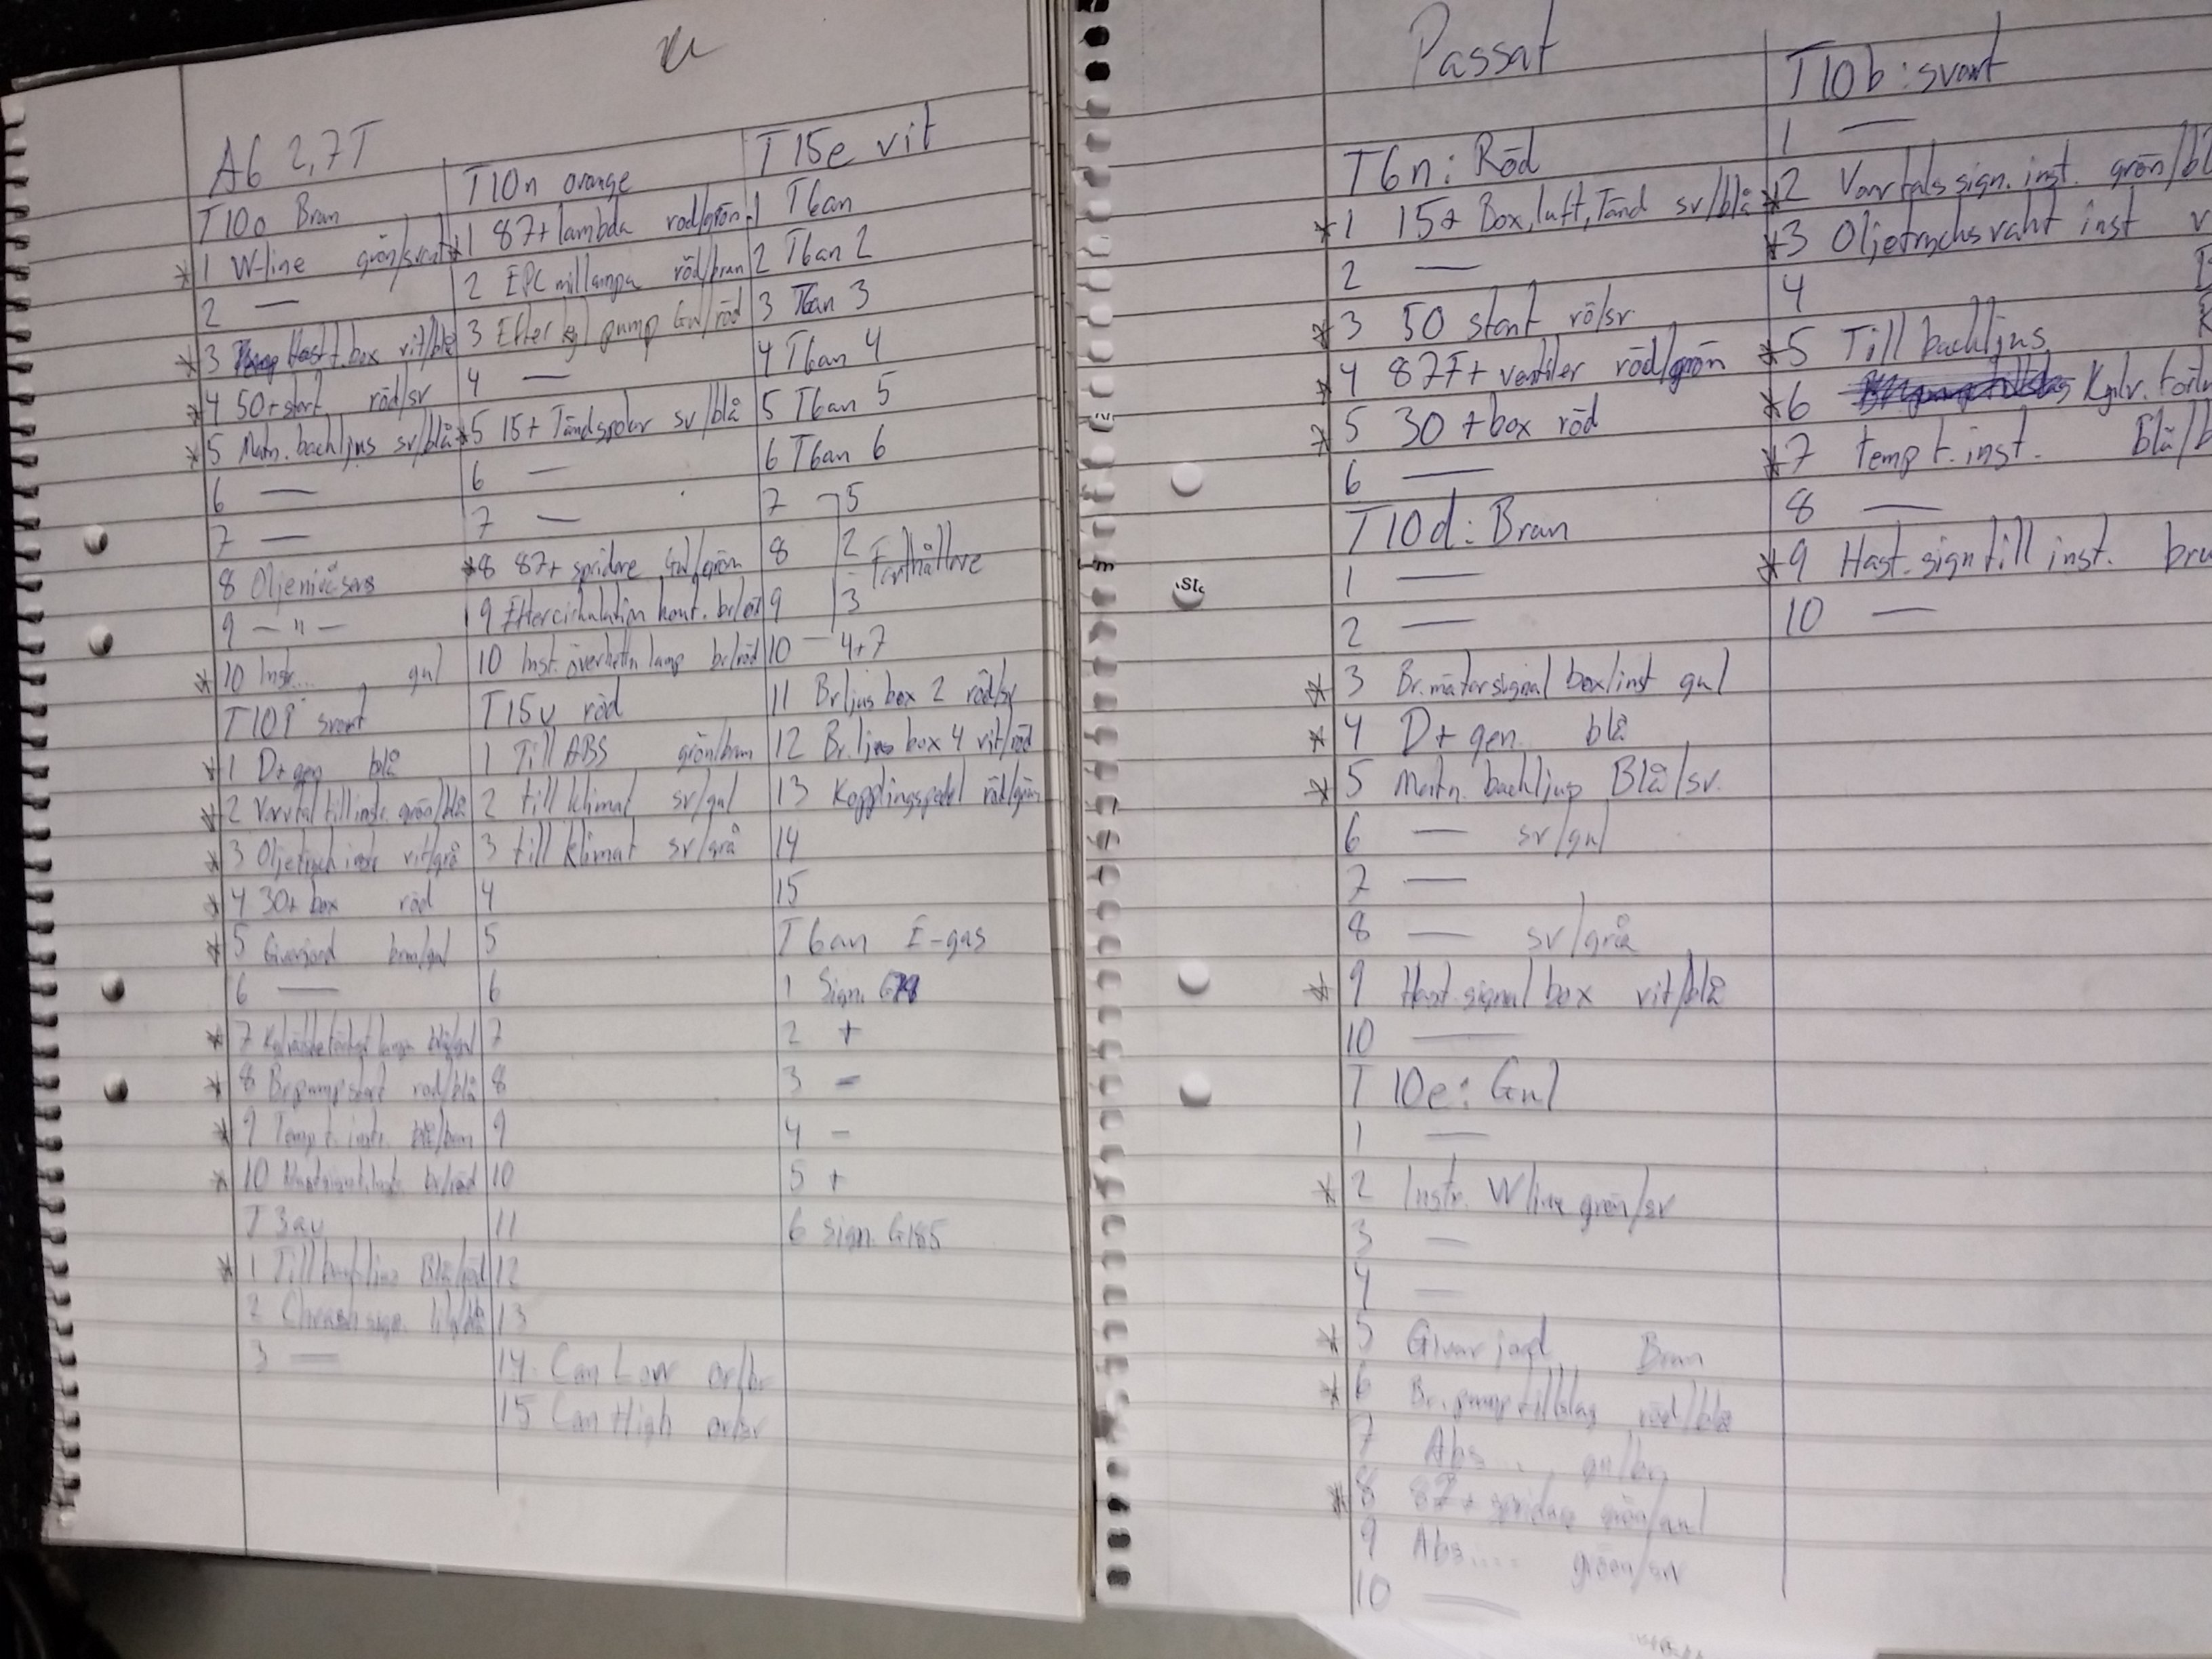 A6 2,7T
T10o Brun
*1 W-line grön/svart
2 —
*3 Hast t. box vit/blå
*4 50+start röd/sv
*5 Matn. backljus sv/blå
6 —
7 —
8 Oljenivåsens
9 — " —
*10 Instr... gul
T10P svart
*1 D+gen blå
*2 Varvtal till instr. grön/blå
*3 Oljetryck instr vit/grå
*4 30+ box röd
*5 Givarjord brun/gul
6 —
*7 lampa blå/gul
*8 Br.pump start röd/blå
*9 Temp t. instr. blå/brun
*10 br/röd
T3au
*1 Till backljus Blå/röd
2 Chrash sign.
3 —
T10n orange
*1 87+ lambda röd/grön
2 EPC millampa röd/brun
3 Efter kyl pump Gul/röd
4 —
*5 15+ Tändspolar sv/blå
6 —
7 —
*8 87+ spridare Gul/grön
9 Eftercirkulation kont.
10 Inst. överhettn lamp br/röd
T15v röd
1 Till ABS grön/brun
2 till klimat sv/gul
3 till klimat sv/grå
4
5
6
7
8
9
10
11
12
13
14 Can Low or/br
15 Can High or/sv
T15e vit
1 T6an
2 T6an 2
3 T6an 3
4 T6an 4
5 T6an 5
6 T6an 6
7 5
8 2 Farthållare
9 3
10 — 4+7
11 Br ljus box 2 röd/sv
12 Br. ljus box 4 vit/röd
13 Kopplingspedal röd/grön
14
15
T6an E-gas
1 Sign. G79
2 +
3 -
4 -
5 +
6 Sign. G185
Passat
T6n: Röd
*1 15+ Box, luft, Tänd sv/blå
2 —
*3 50 start rö/sv
*4 87F+ ventiler röd/grön
*5 30 + box röd
6 —
T10d: Brun
1 —
2 —
*3 Br. mätarsignal box/inst gul
*4 D+ gen. blå
*5 Matn. backljus Blå/sv.
6 — sv/gul
7 —
8 — sv/grå
*9 Hast. signal box vit/blå
10 —
T10e: Gul
1 —
*2 Instr. W line grön/sv
3 —
4 —
*5 Givar jord Brun
*6 Br. pump tillslag röd/blå
7 Abs...
*8 87+ spridare grön/gul
9 Abs.... grön/sv
10 —
T10b: svart
1 —
*2 Varvtals sign. inst. grön/bl
*3 Oljetrycksvakt inst v
4
*5 Till backljus
*6 Kylv.
*7 temp t. inst. Blå/b
8 —
*9 Hast. sign till inst. bru
10 —